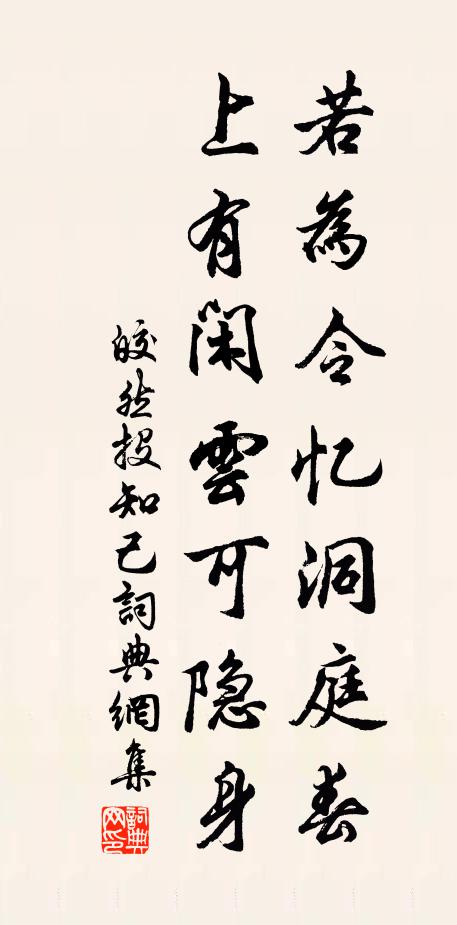 若為令忆洞庭春
上有閑雲可隐身
皎然投知己詞典網集
詞典网印